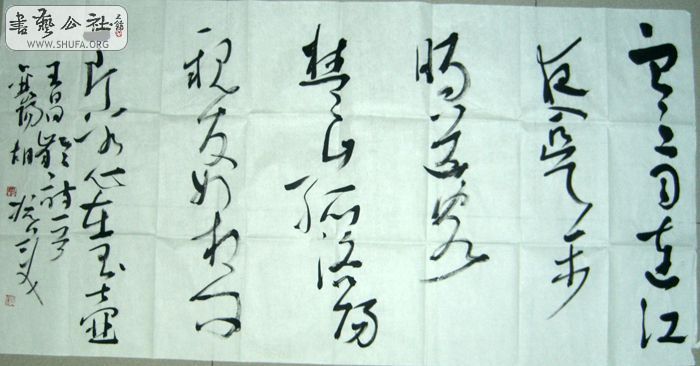 書藝公社
WWW.SHUFA.ORG
寒雨連江
夜入吴平
明送客
楚山孤洛陽
親友如相問
一片冰心在玉壺
王昌齡詩一首